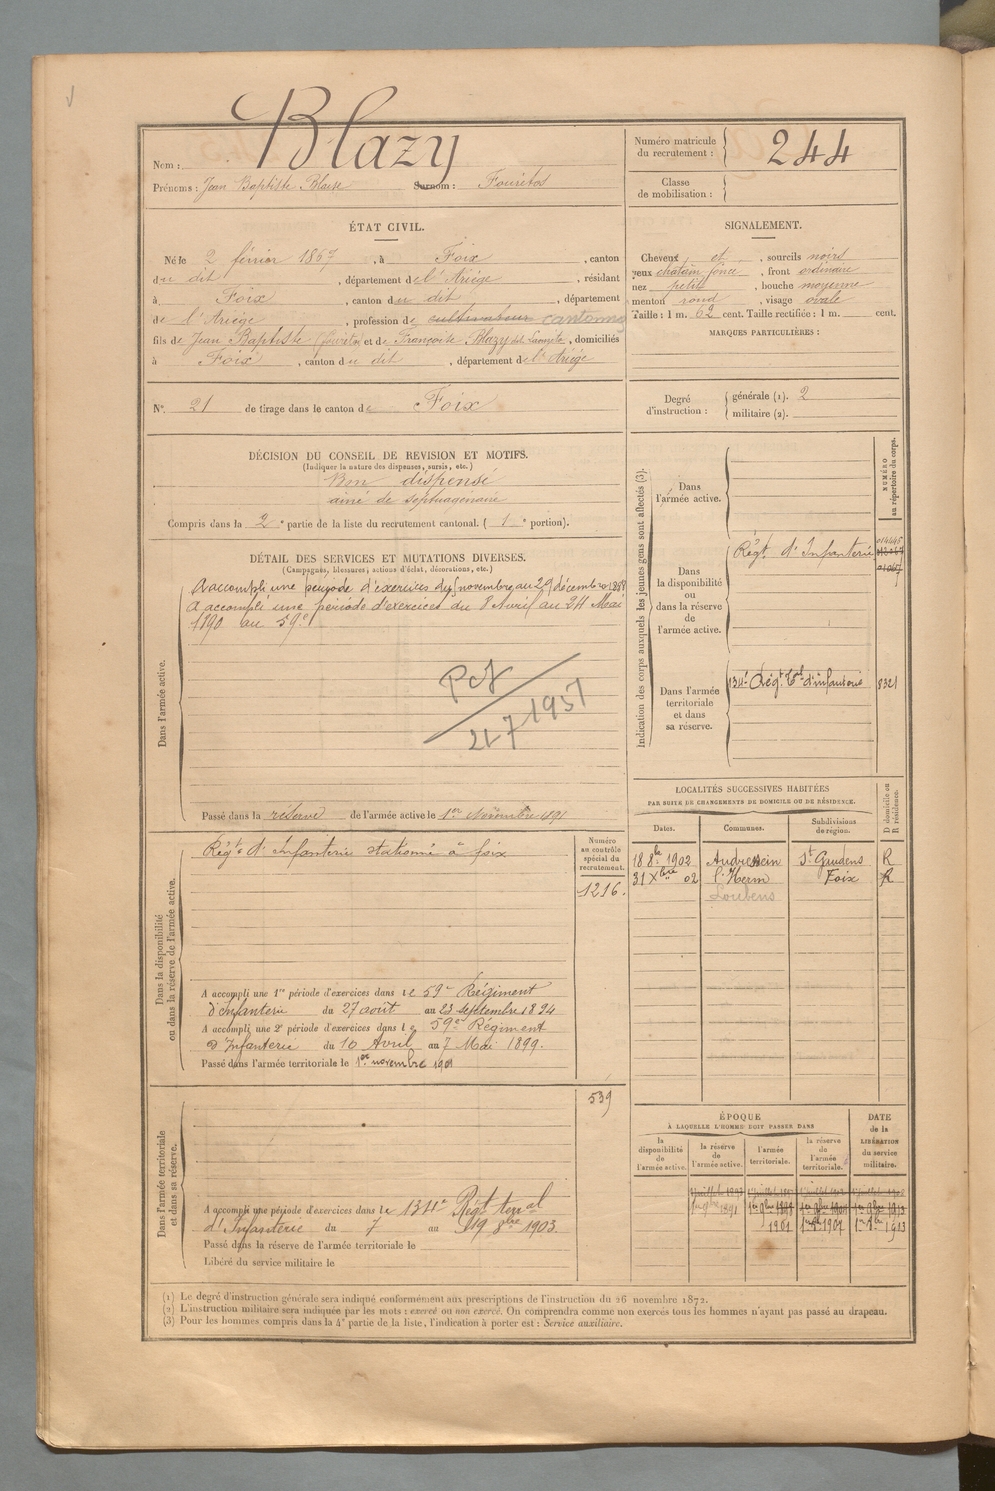 Nom : Blazy
Prénoms : Jean Baptiste Blaise Surnom : Fouritos
Numéro matricule du recrutement : 244
Classe de mobilisation :
ÉTAT CIVIL.
Né le 2 février 1867, à Foix, canton
du dit, département de l'Ariège, résidant
à Foix, canton du dit, département
de l'Ariège, profession de cultivateur
fils de Jean Baptiste (Fouritos) et de Françoise Blazy dit, domiciliés
à Foix, canton du dit, département de l'Ariège
SIGNALEMENT.
Cheveux et, sourcils noirs
yeux chatain foncé, front ordinaire
nez petit, bouche moyenne
menton rond, visage ovale
Taille : 1 m. 62 cent. Taille rectifiée : 1 m. cent.
MARQUES PARTICULIÈRES :
N° 21 de tirage dans le canton de Foix
Degré d'instruction : générale (1). 2
militaire (2).
DÉCISION DU CONSEIL DE REVISION ET MOTIFS.
(Indiquer la nature des dispenses, sursis, etc.)
Bon dispensé
ainé de septuagénaire
Compris dans la 2e partie de la liste du recrutement cantonal. (1e portion).
DÉTAIL DES SERVICES ET MUTATIONS DIVERSES.
(Campagnes, blessures, actions d'éclat, décorations, etc.)
Dans l'armée active.
A accompli une période d'exercices du novembre au 29 décembre 1888
A accompli une période d'exercices du 8 Avril au 24 Mai
1890 au 59e
21-7 1957
Passé dans la réserve de l'armée active le 1er Novembre 1891
Indication des corps auxquels les jeunes gens sont affectés (3).
NUMÉRO au répertoire du corps.
Dans l'armée active.
Dans la disponibilité ou dans la réserve de l'armée active.
Régt d'Infanterie
Dans l'armée territoriale et dans sa réserve.
134e Régt Tal d'infanterie 8321
LOCALITÉS SUCCESSIVES HABITÉES
PAR SUITE DE CHANGEMENTS DE DOMICILE OU DE RÉSIDENCE.
Dates. Communes. Subdivisions de région. D domicile ou R résidence.
18 8bre 1902 Audressein St Gaudens R
31 Xbre 02 l'Herm Foix R
Loubens
Dans la disponibilité ou dans la réserve de l'armée active.
Régt d'Infanterie stationné à Foix
Numéro au contrôle spécial du recrutement.
1216.
A accompli une 1re période d'exercices dans le 59e Régiment
d'Infanterie du 27 août au 23 septembre 1894
A accompli une 2e période d'exercices dans le 59e Régiment
d'Infanterie du 10 Avril au 7 Mai 1899.
Passé dans l'armée territoriale le 1er novembre 1901
Dans l'armée territoriale et dans sa réserve.
539
A accompli une période d'exercices dans le 134e Régt terral
d'Infanterie du 7 au 19 8bre 1903.
Passé dans la réserve de l'armée territoriale le
Libéré du service militaire le
ÉPOQUE
À LAQUELLE L'HOMME DOIT PASSER DANS
la disponibilité de l'armée active. la réserve de l'armée active. l'armée territoriale. la réserve de l'armée territoriale.
DATE de la LIBÉRATION du service militaire.
1891
1901 1907 1913
(1) Le degré d'instruction générale sera indiqué conformément aux prescriptions de l'instruction du 26 novembre 1872.
(2) L'instruction militaire sera indiquée par les mots : exercé ou non exercé. On comprendra comme non exercés tous les hommes n'ayant pas passé au drapeau.
(3) Pour les hommes compris dans la 4e partie de la liste, l'indication à porter est : Service auxiliaire.